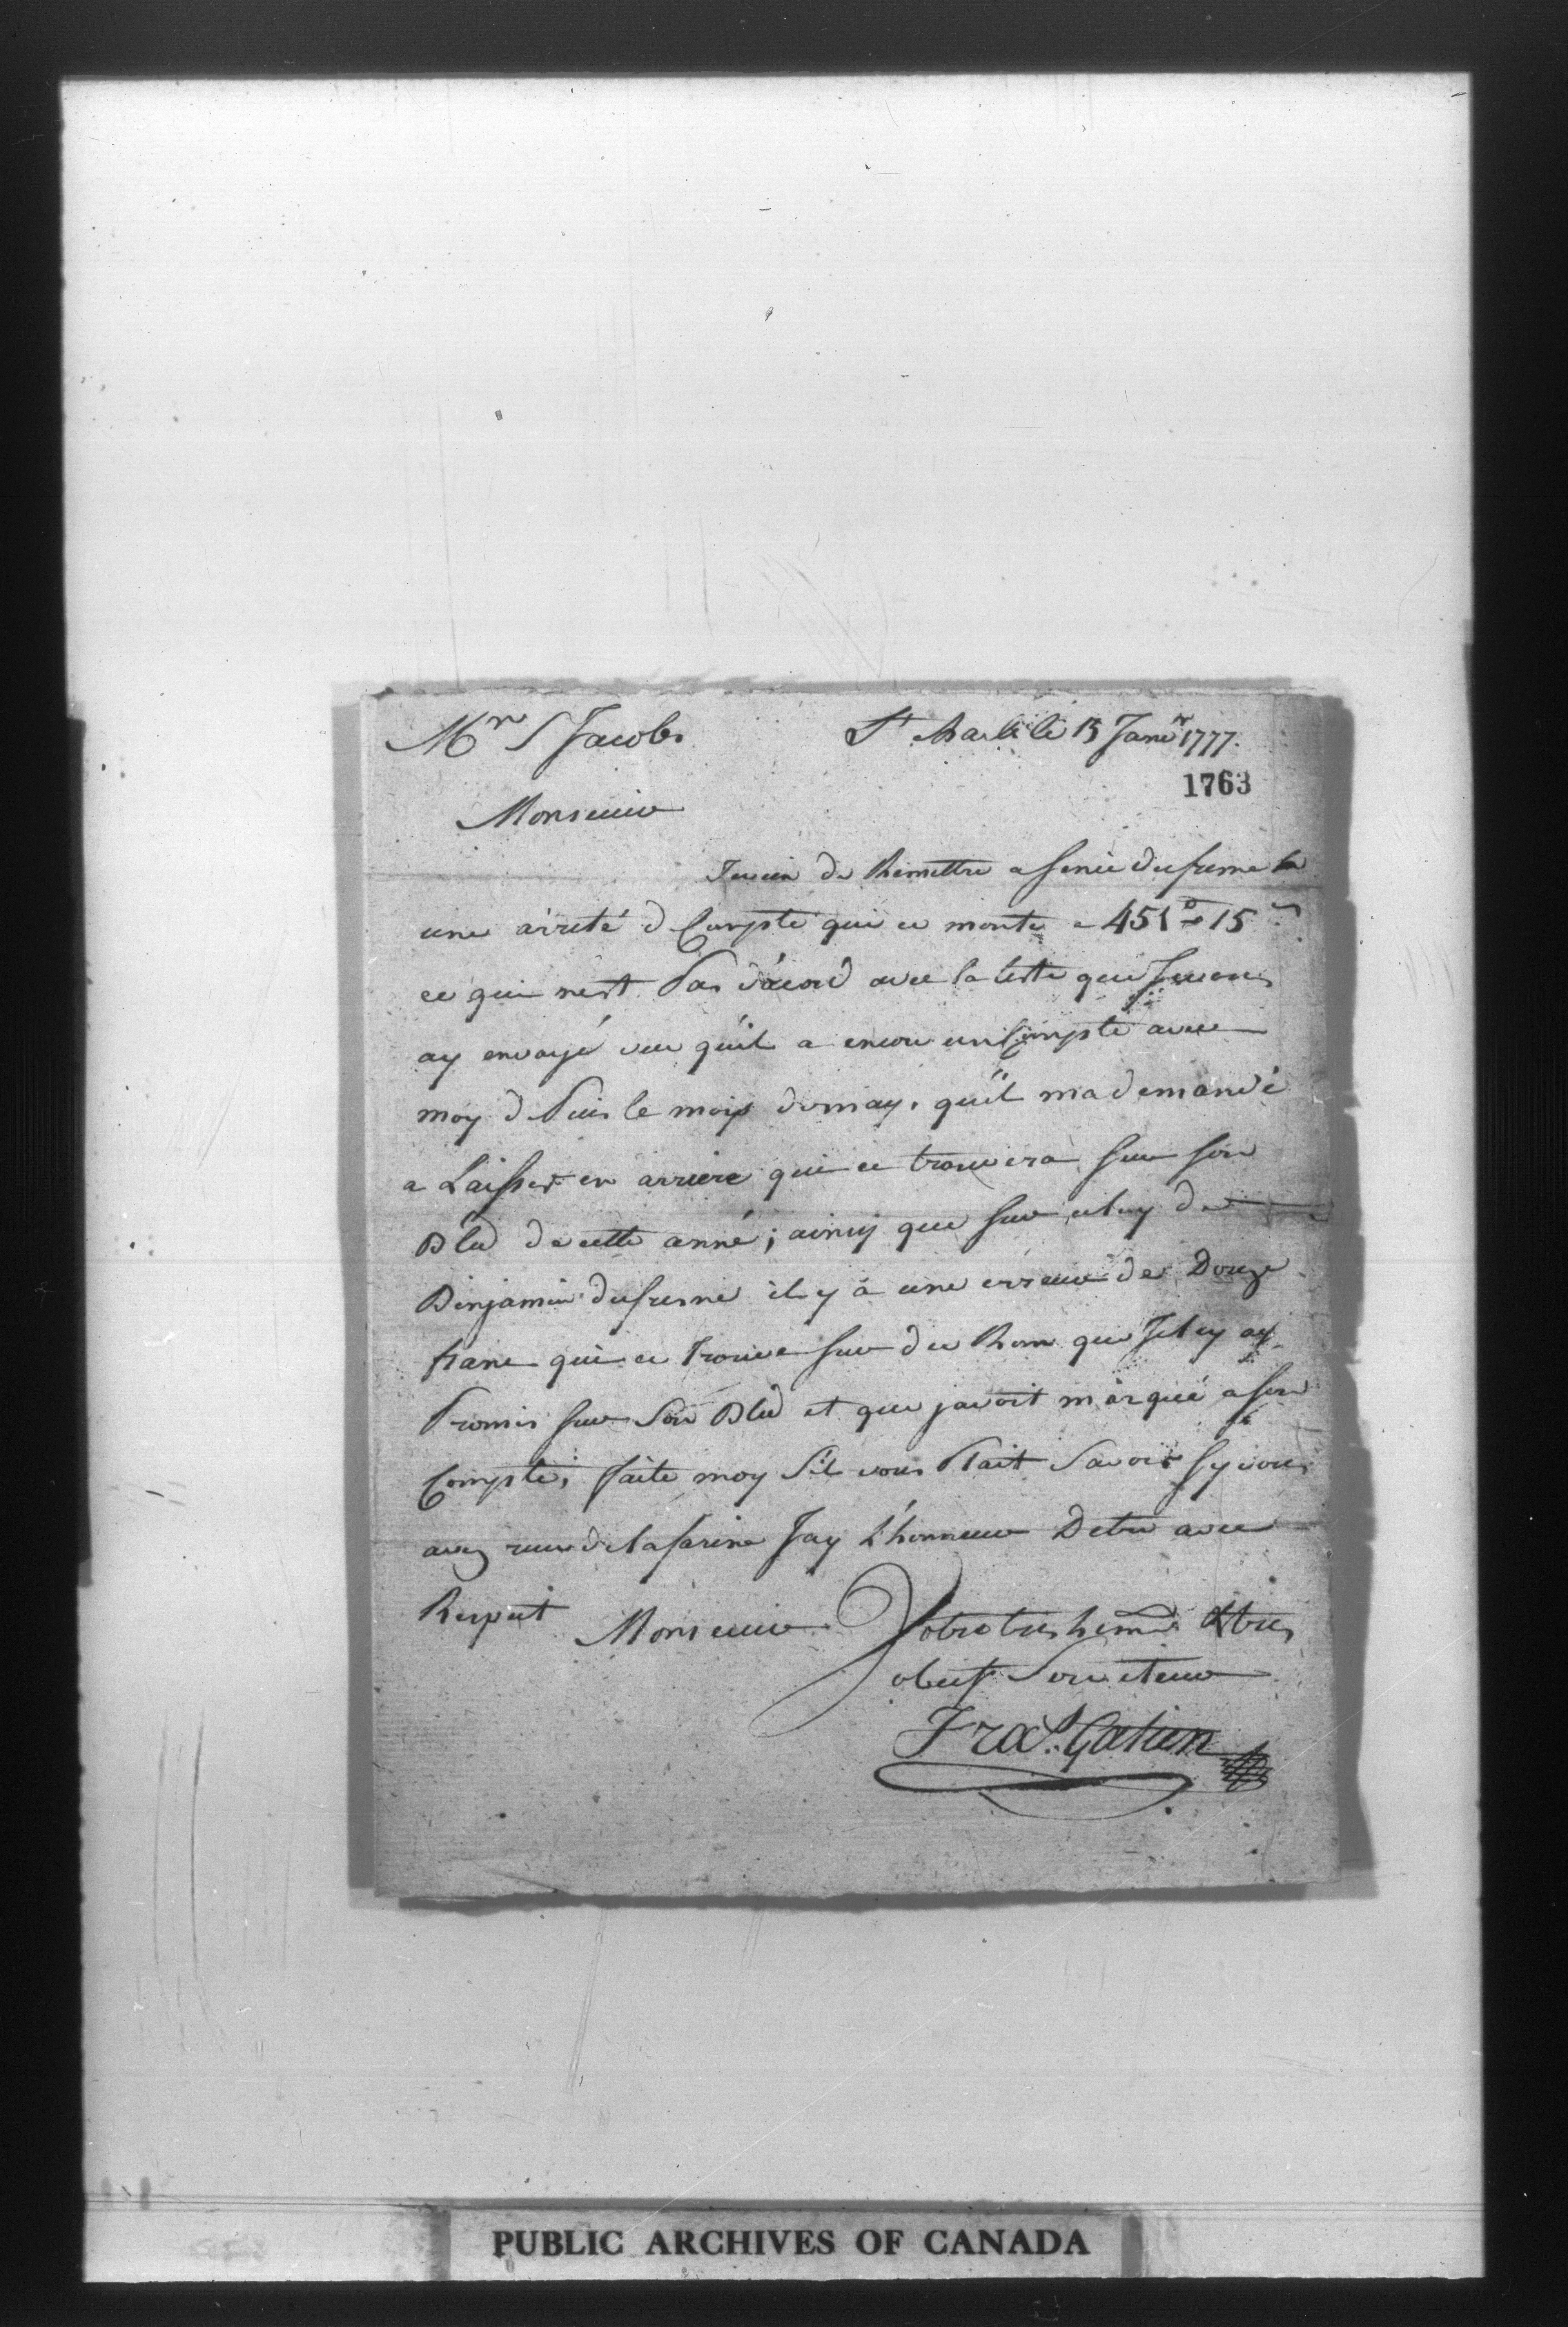 Mr S Jacobs St Charle le 15 Janvr 1777.
1763
Monsieur
Je vien de Remettre a dufresne
une arreté d Compte qui ce monte a 451 15
ce qui nest Pas dácord avec la liste que Je vous
ay envoyé veu quil a encore un Compte avec
moy d Puis le mois de may, quil ma demandé
a Laisser en arriere qui ce trouvera sur son
Bled de cette anné; ainsy que sur celuy de
Benjamin dufresne il y á une erreur de Douze
franc qui ce Trouve sur du Rom que Je luy ay
Promis sur Son Bled et que javoit marqué a son
Compte; faite moy Sil vous Plait Savoir sy vous
avez reçu de la farine Jay L'honneur Detre avec
Respect Monsieur Votre tres & tres
obeist Serviteur
Fras. Gatien
PUBLIC ARCHIVES OF CANADA